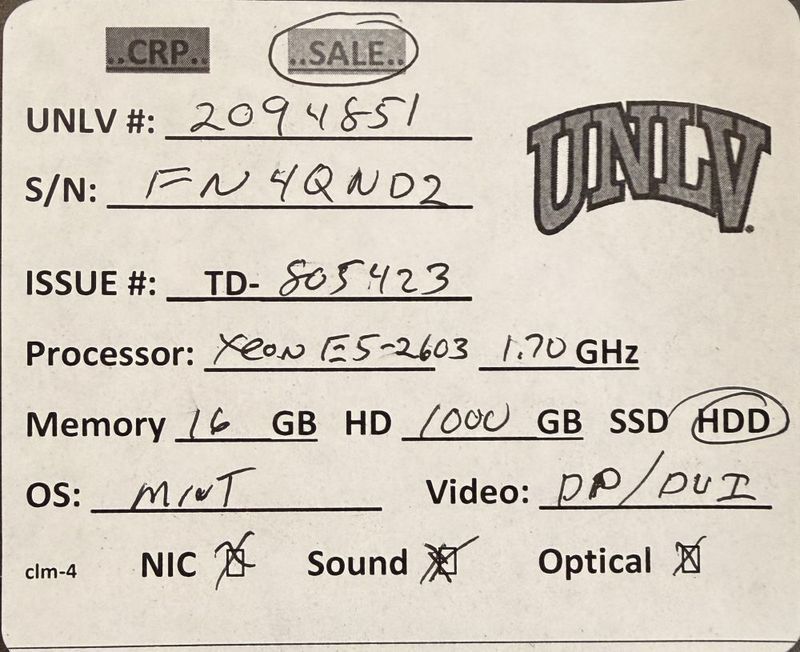 ..CRP.. ..SALE..
UNLV #: 2094851
UNLV
S/N: FN4QND2
ISSUE #: TD- 805423
Processor: Xeon E5-2603 1.70 GHz
Memory 16 GB HD 1000 GB SSD HDD
OS: MINT Video: DP/DVI
clm-4 NIC ☒ Sound ☒ Optical ☒